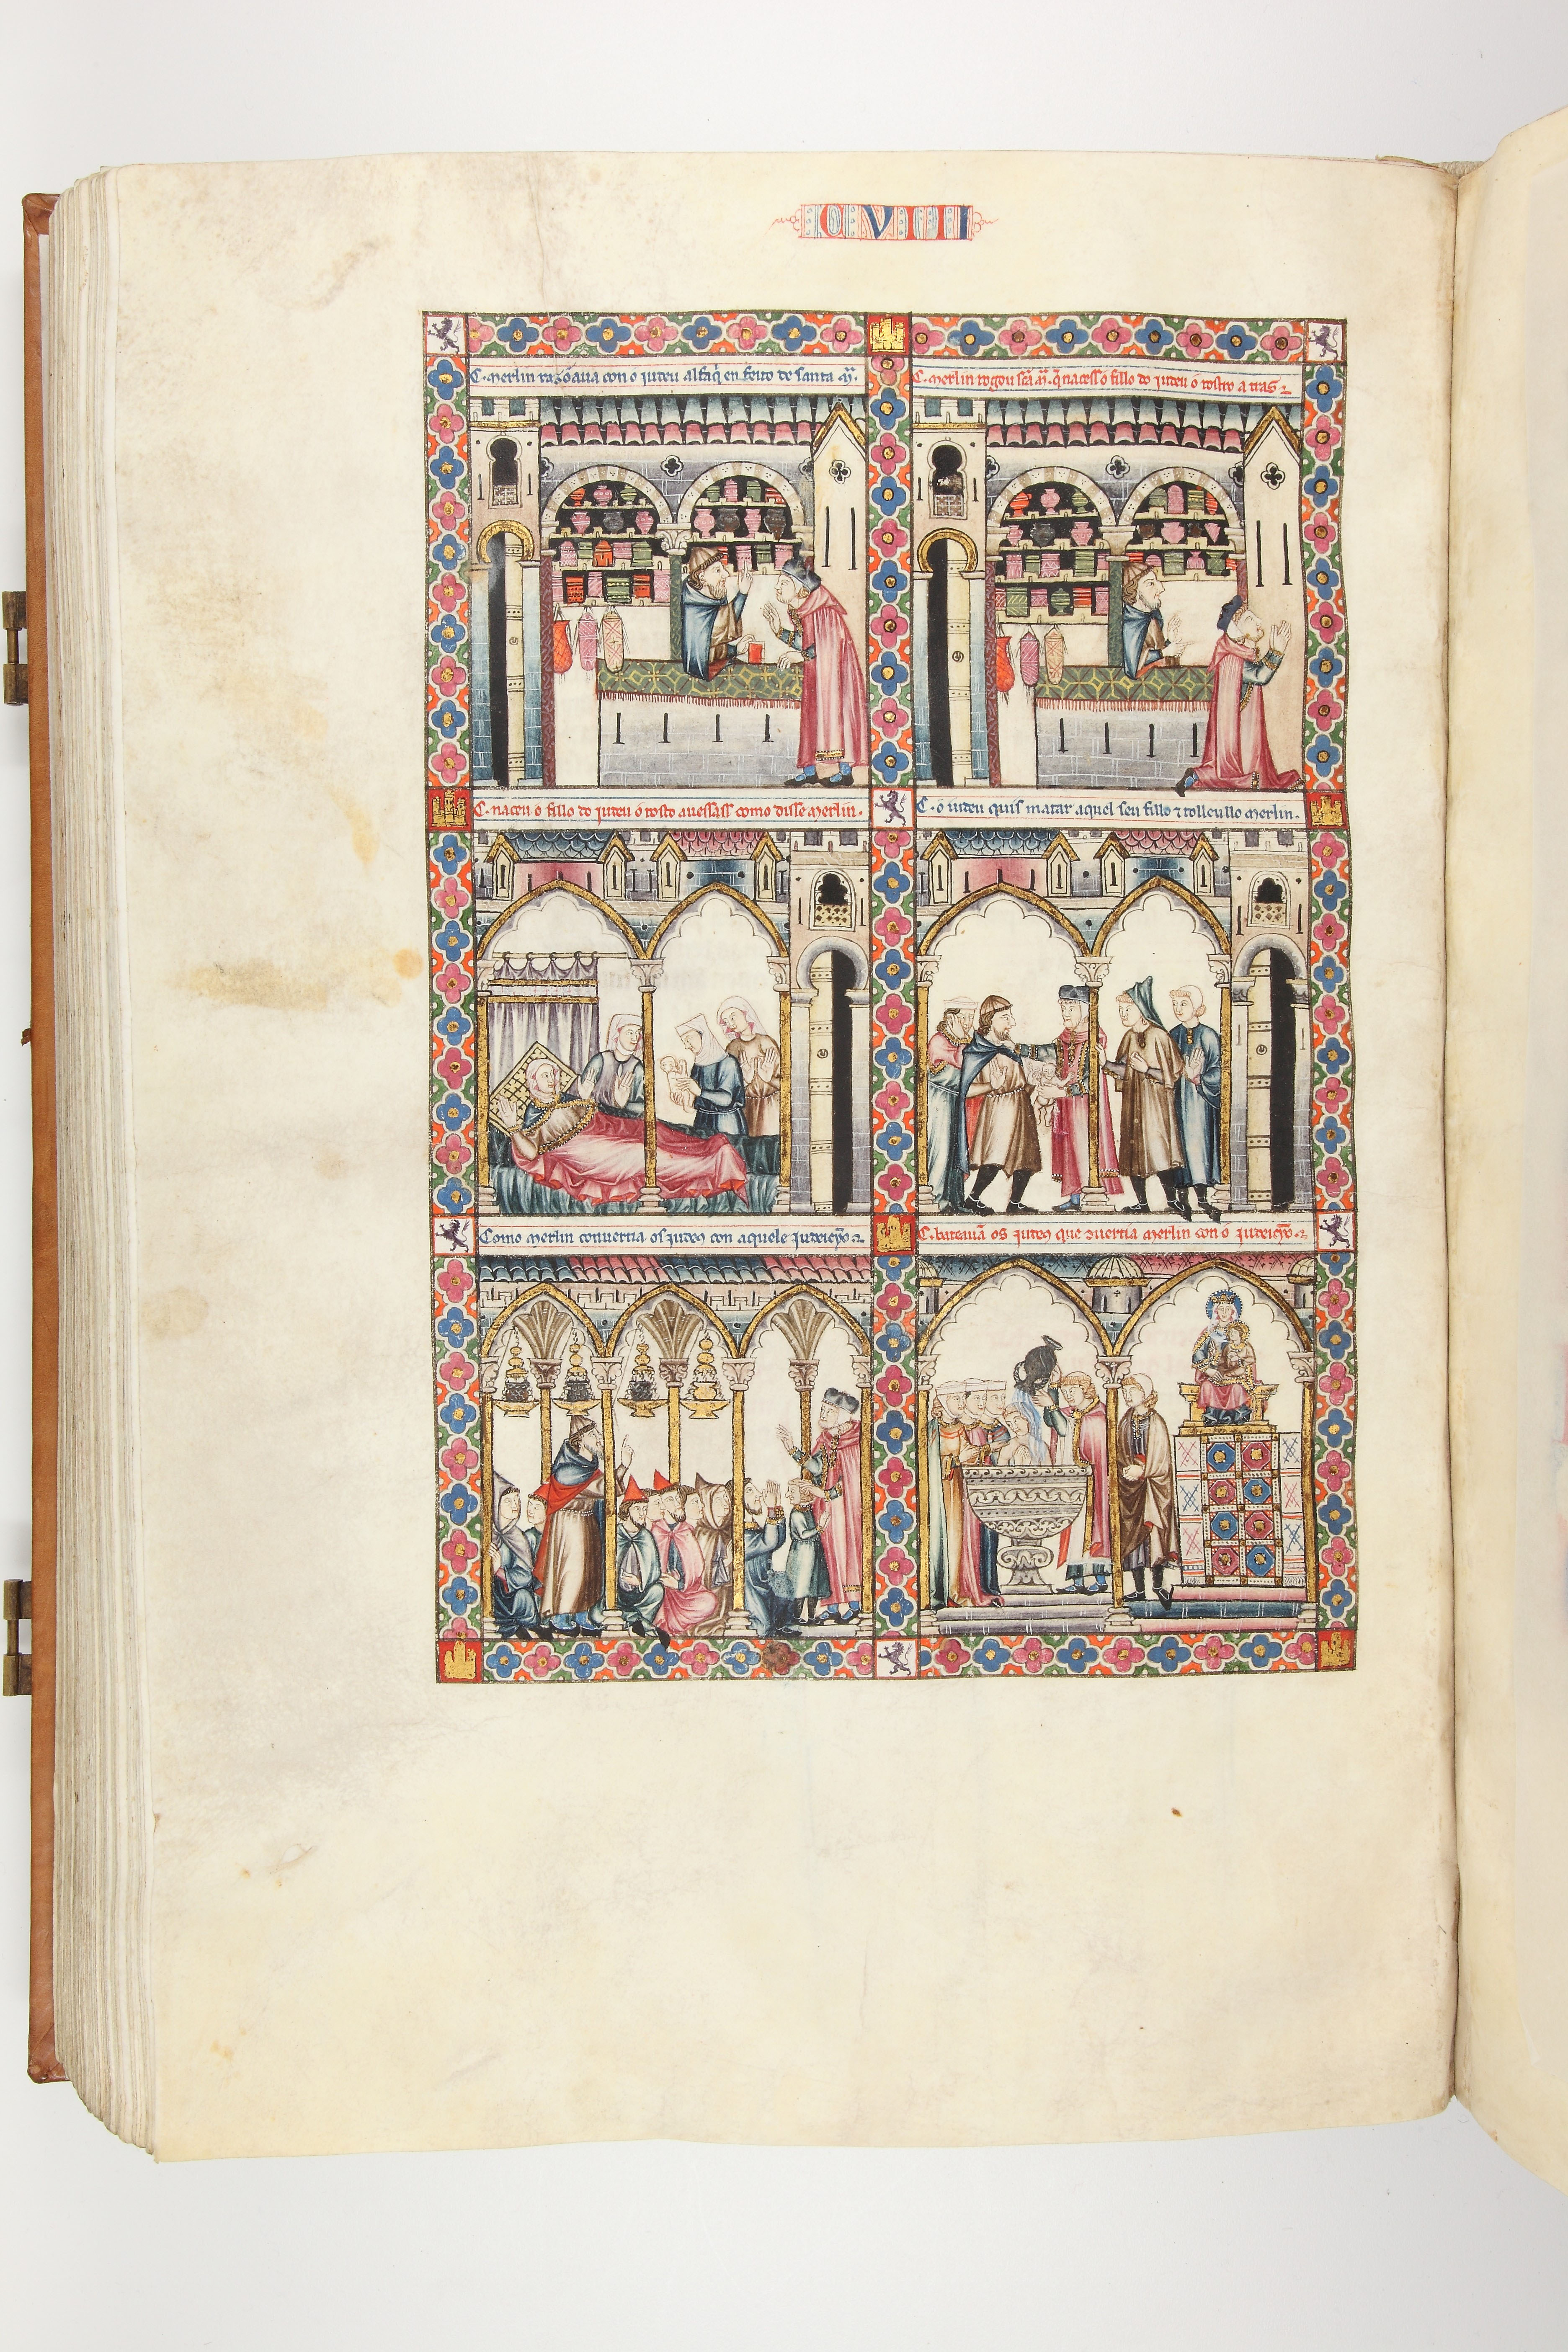 CVIII
C. merlin razõaua con o iudeu alfaq̃ en feito de santa m̃.
C. merlin rogou sc̃a m̃. q̃ nacess o fillo do iudeu o rostro a tras
C. naceu o fillo do iudeu o rosto auessass como disse merlin.
C. o iudeu quis matar aquel seu fillo ⁊ tolleullo merlin.
Como merlin conuertia os iudeus con aquele iudeicỹo
C. bateauã os iudeus que ꝯuertia merlin con o iudeicỹo